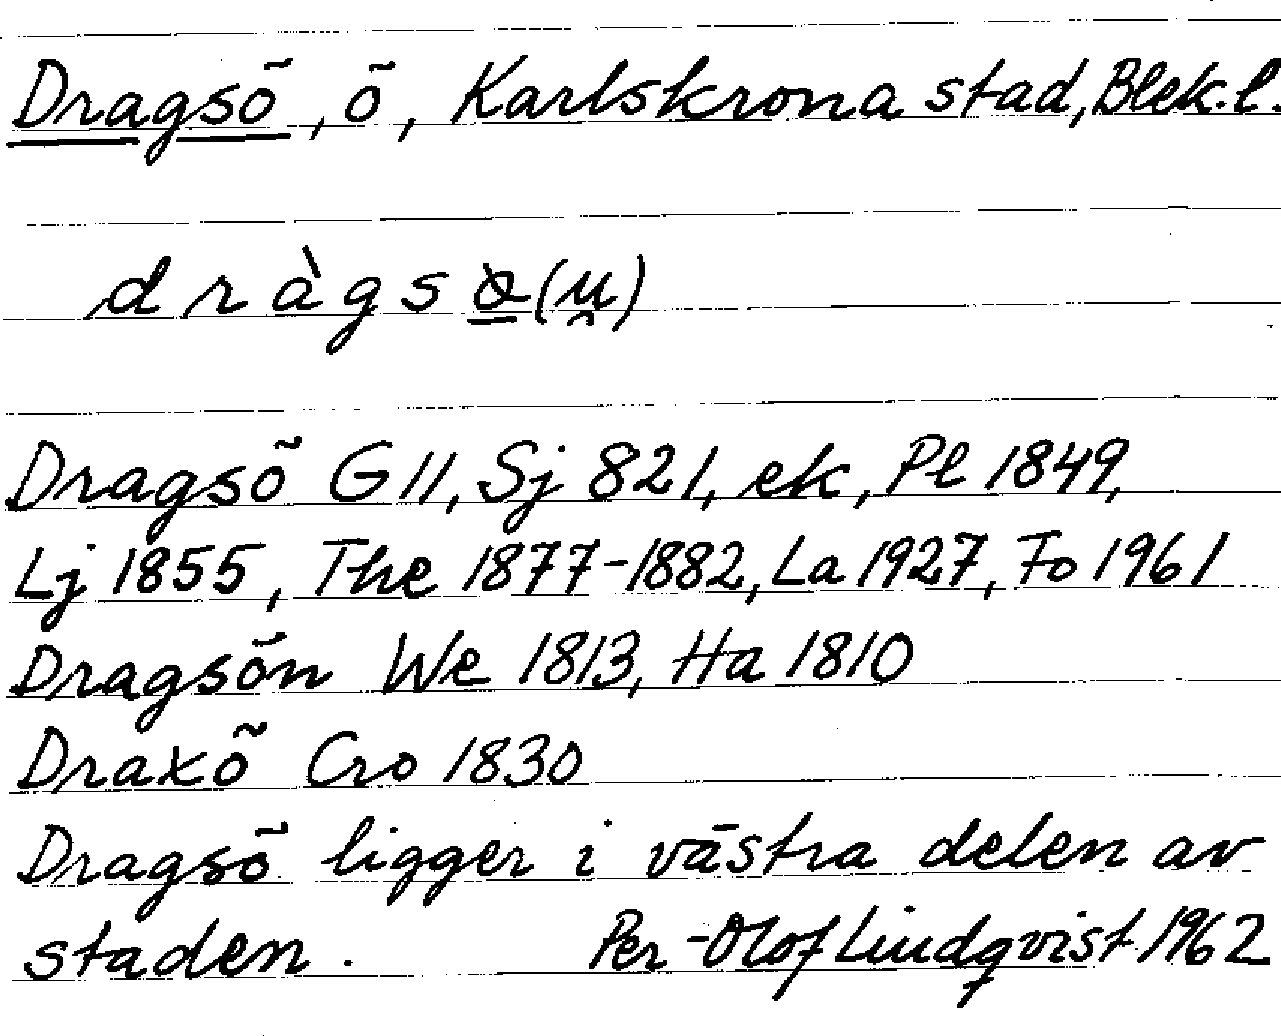 Dragsö, ö, Karlskrona stad, Blek.l.
dràgsö̀(u̯)
Dragsö G11, Sj 821, ek, Pl 1849,
Lj 1855, The 1877-1882, La 1927, Fo 1961
Dragsön We 1813, Ha 1810
Draxö Cro 1830
Dragsö ligger i västra delen av
staden. Per-Olof Lindqvist 1962